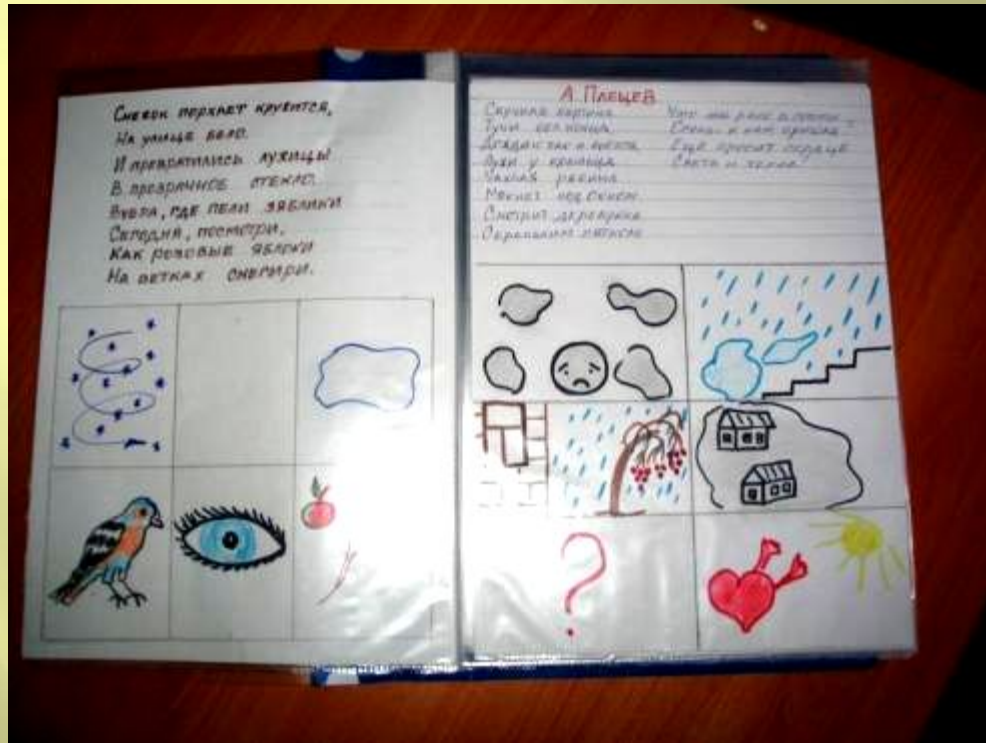 Снежок порхает кружится,
На улице бело.
И превратились лужицы
В прозрачное стекло.
Вчера, где пели зяблики
Сегодня, посмотри,
Как розовые яблоки
На ветках снегири.
А. Плещев
Скучная картина
Тучи без конца
Дождик так и льется
Лужи у крыльца
Чахлая рябина
Мокнет под окном
Смотрит деревушка
Сереньким пятном
Что ты рано в гости
Осень, к нам пришла
Еще просит сердце
Света и тепла
?